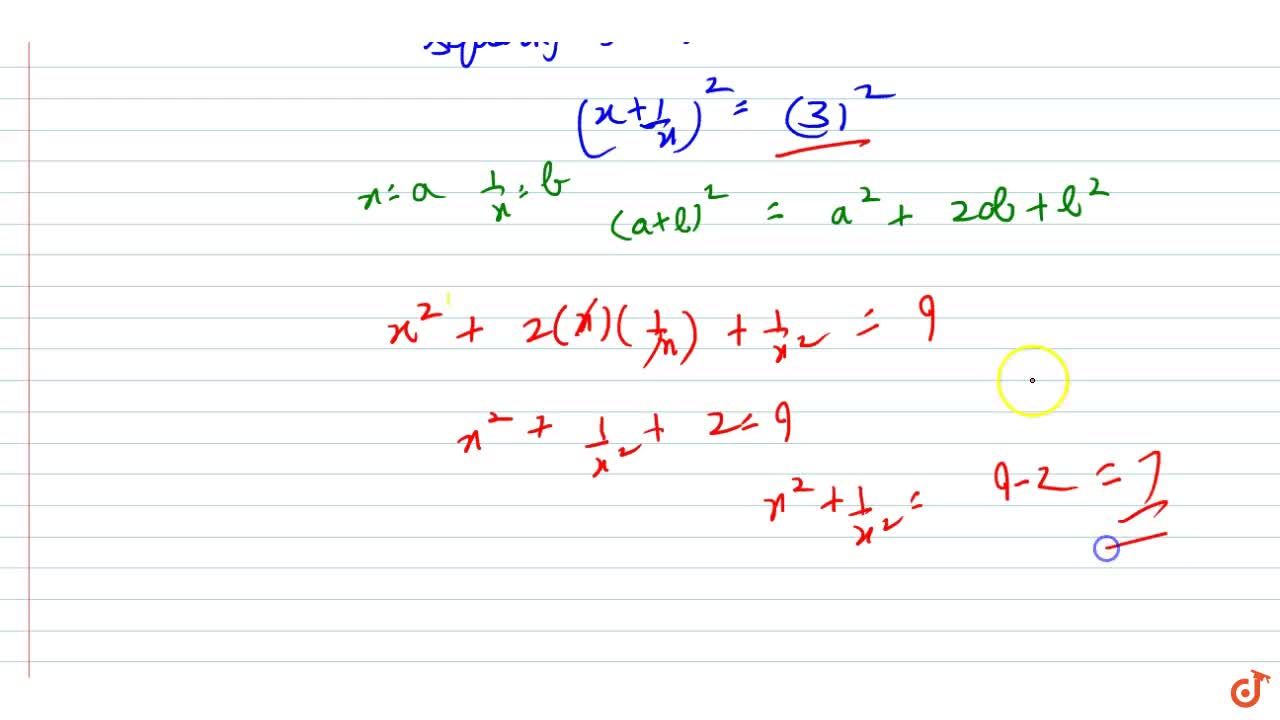 (x + 1/x)² = (3)²
x = a 1/x = b
(a+b)² = a² + 2ab + b²
x² + 2(x)(1/x) + 1/x² = 9
x² + 1/x² + 2 = 9
x² + 1/x² = 9 - 2 = 7